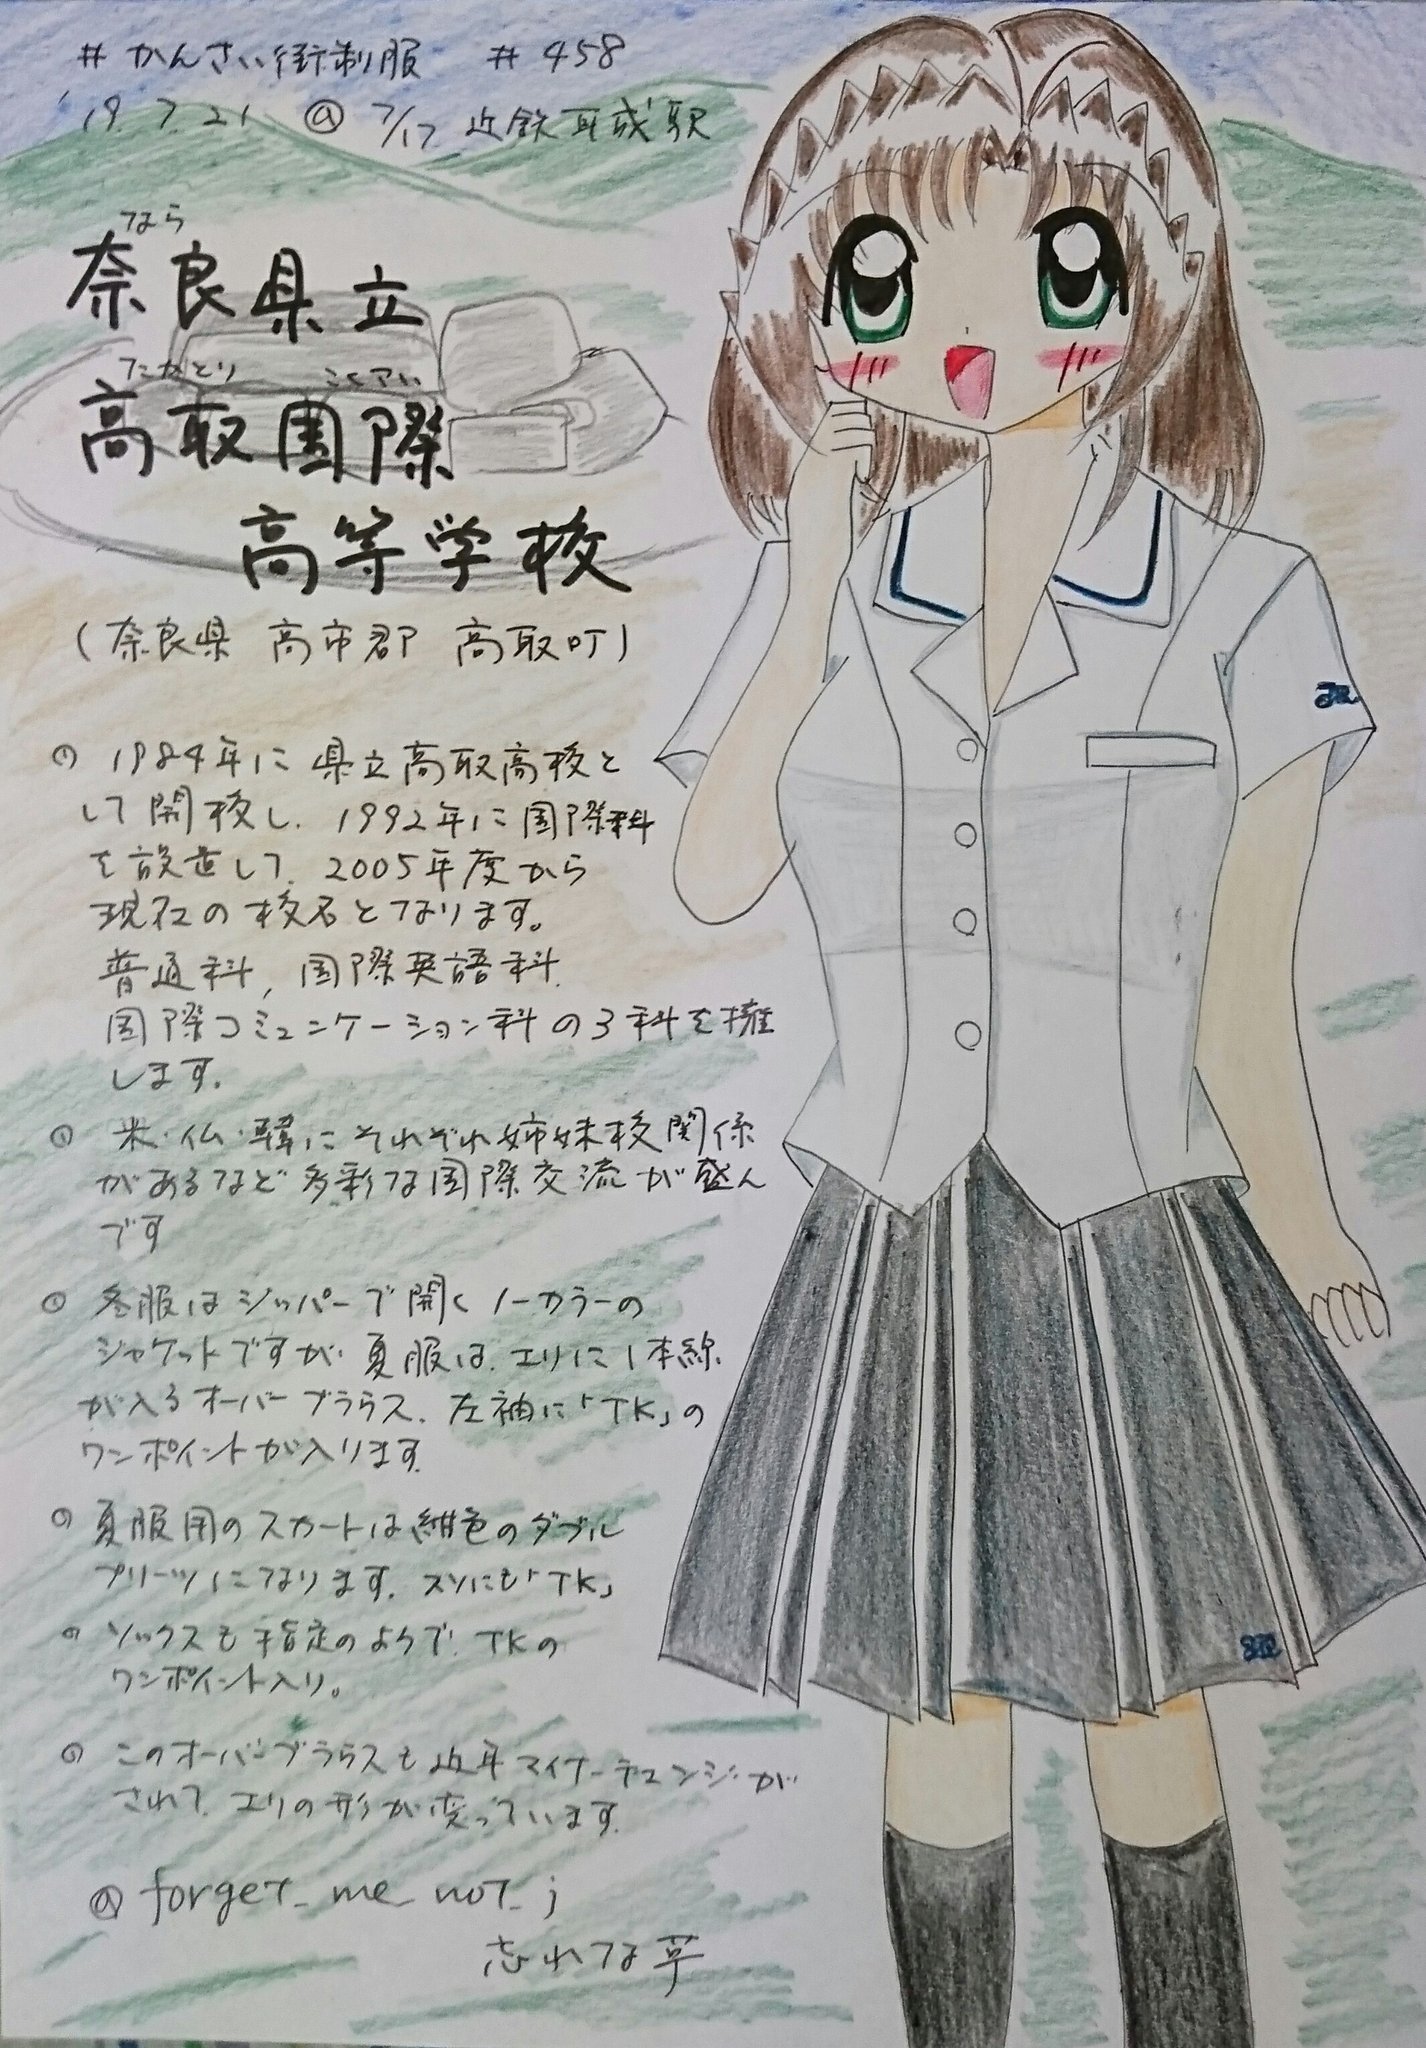 # かんさい街制服 # 458
'19.7.21 @ 7/17 近鉄耳成駅
なら
奈良県立
たかとり こくさい
高取国際
高等学校
(奈良県 高市郡 高取町)
① 1984年に県立高取高校と
して開校し、1992年に国際科
を設置して、2005年度から
現在の校名となります。
普通科、国際英語科、
国際コミュニケーション科の3科を擁
します。
① 米・仏・韓にそれぞれ姉妹校関係
があるなど多彩な国際交流が盛ん
です
① 冬服はジッパーで開くノーカラーの
ジャケットですが、夏服は、エリに1本線
が入るオーバーブラウス、左袖に「TK」の
ワンポイントが入ります。
① 夏服用のスカートは紺色のダブル
プリーツになります。スソにも「TK」
① ソックスも指定のようで、TKの
ワンポイント入り。
① このオーバーブラウスも近年マイナーチェンジが
されて、エリの形が変っています。
@ forget_me_not_j
忘れな草